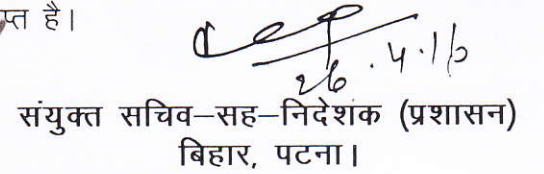 प्त है।
26.4.16
संयुक्त सचिव–सह–निदेशक (प्रशासन)
बिहार, पटना।